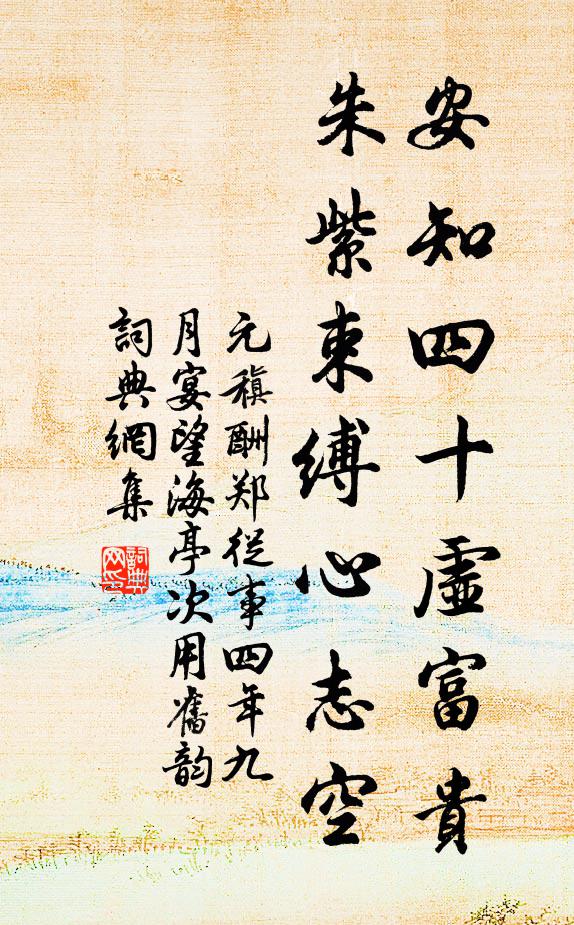 安知四十虛富貴
朱紫束縛心志空
元稹酬郑從事四年九
月宴望海亭次用舊韵
詞典網集
詞典
网